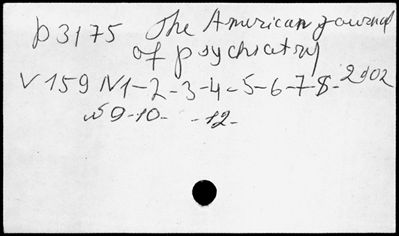 p3175 The American journal
of psychiatry
V159 N1-2-3-4-5-6-7-8- 2002
N9-10- -12-